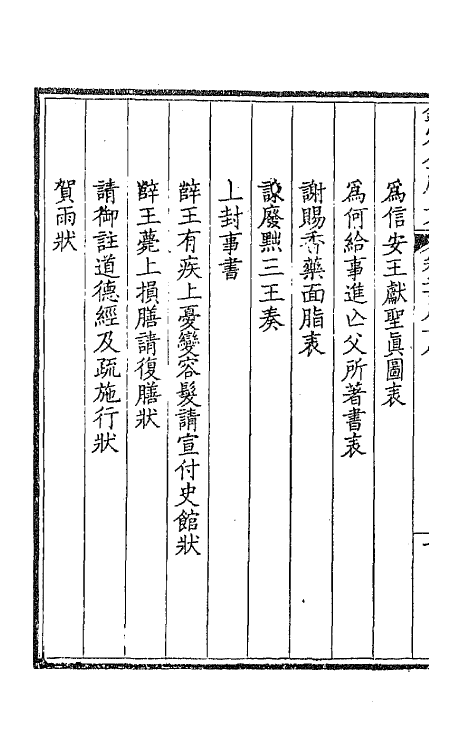 為信安王獻聖眞圖表
為何給事進亾父所著書表
謝賜香藥面脂表
諫廢黜三王奏
上封事書
薛王有疾上憂變容髮請宣付史館狀
薛王薨上損膳請復膳狀
請御註道德經及疏施行狀
賀雨狀